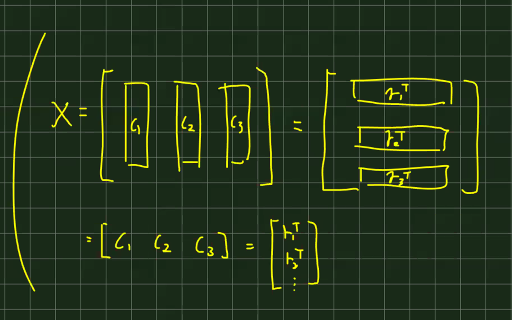 X = [ c₁ c₂ c₃ ] = [ r₁ᵀ r₂ᵀ r₃ᵀ ]
= [ c₁ c₂ c₃ ] = [ r₁ᵀ r₂ᵀ ⋮ ]